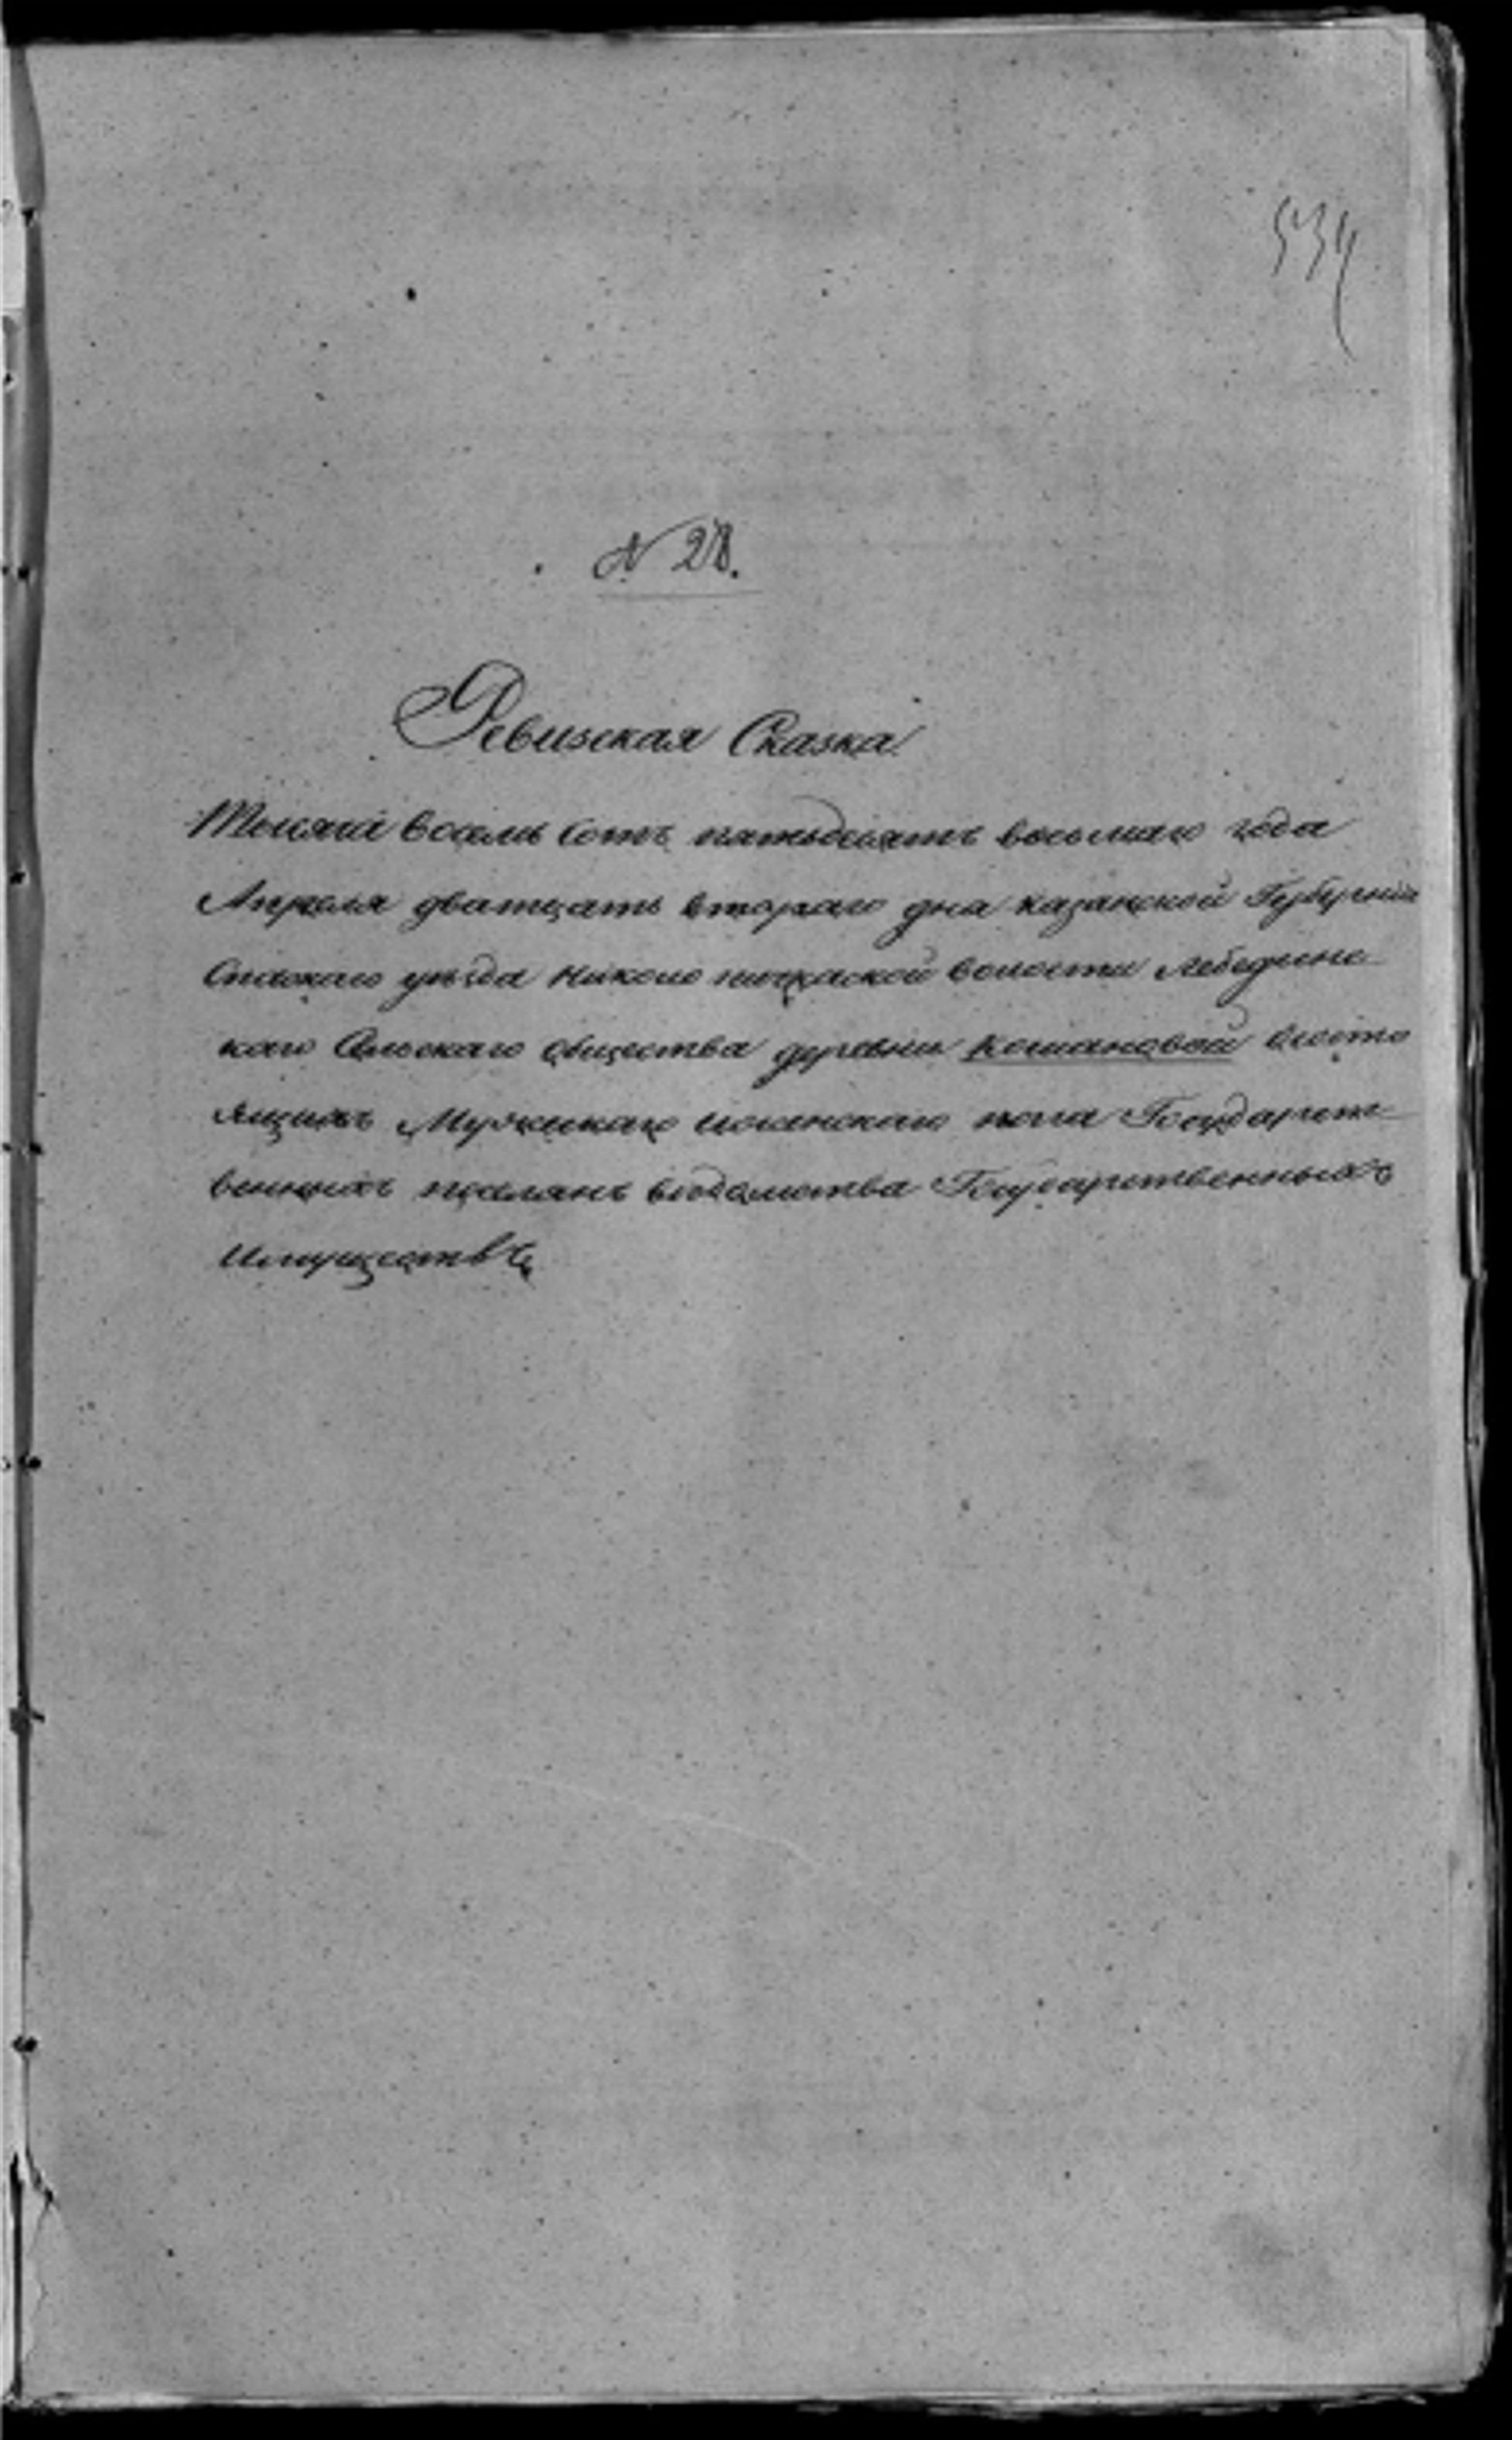 534
N 28.
Ревизская Сказка.
Тысяча восемь сотъ пятьдесятъ восьмаго года
Апреля дватцать втораго дня казанской Губернии
Спаскаго уѣзда Николо пичкаской волости Лебединс
каго Сельскаго общества деревни Кошановой о состо
ящихъ Мужскаго и женскаго пола Государст
венныхъ поселянъ вѣдомства Государственныхъ
Имуществъ